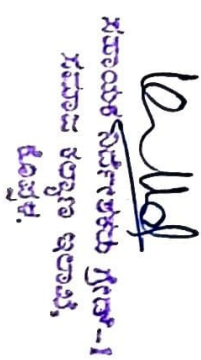 ಸಹಾಯಕ ನಿರ್ದೇಶಕರು ಗ್ರೇಡ್-1
ಸಮಾಜ ಕಲ್ಯಾಣ ಇಲಾಖೆ,